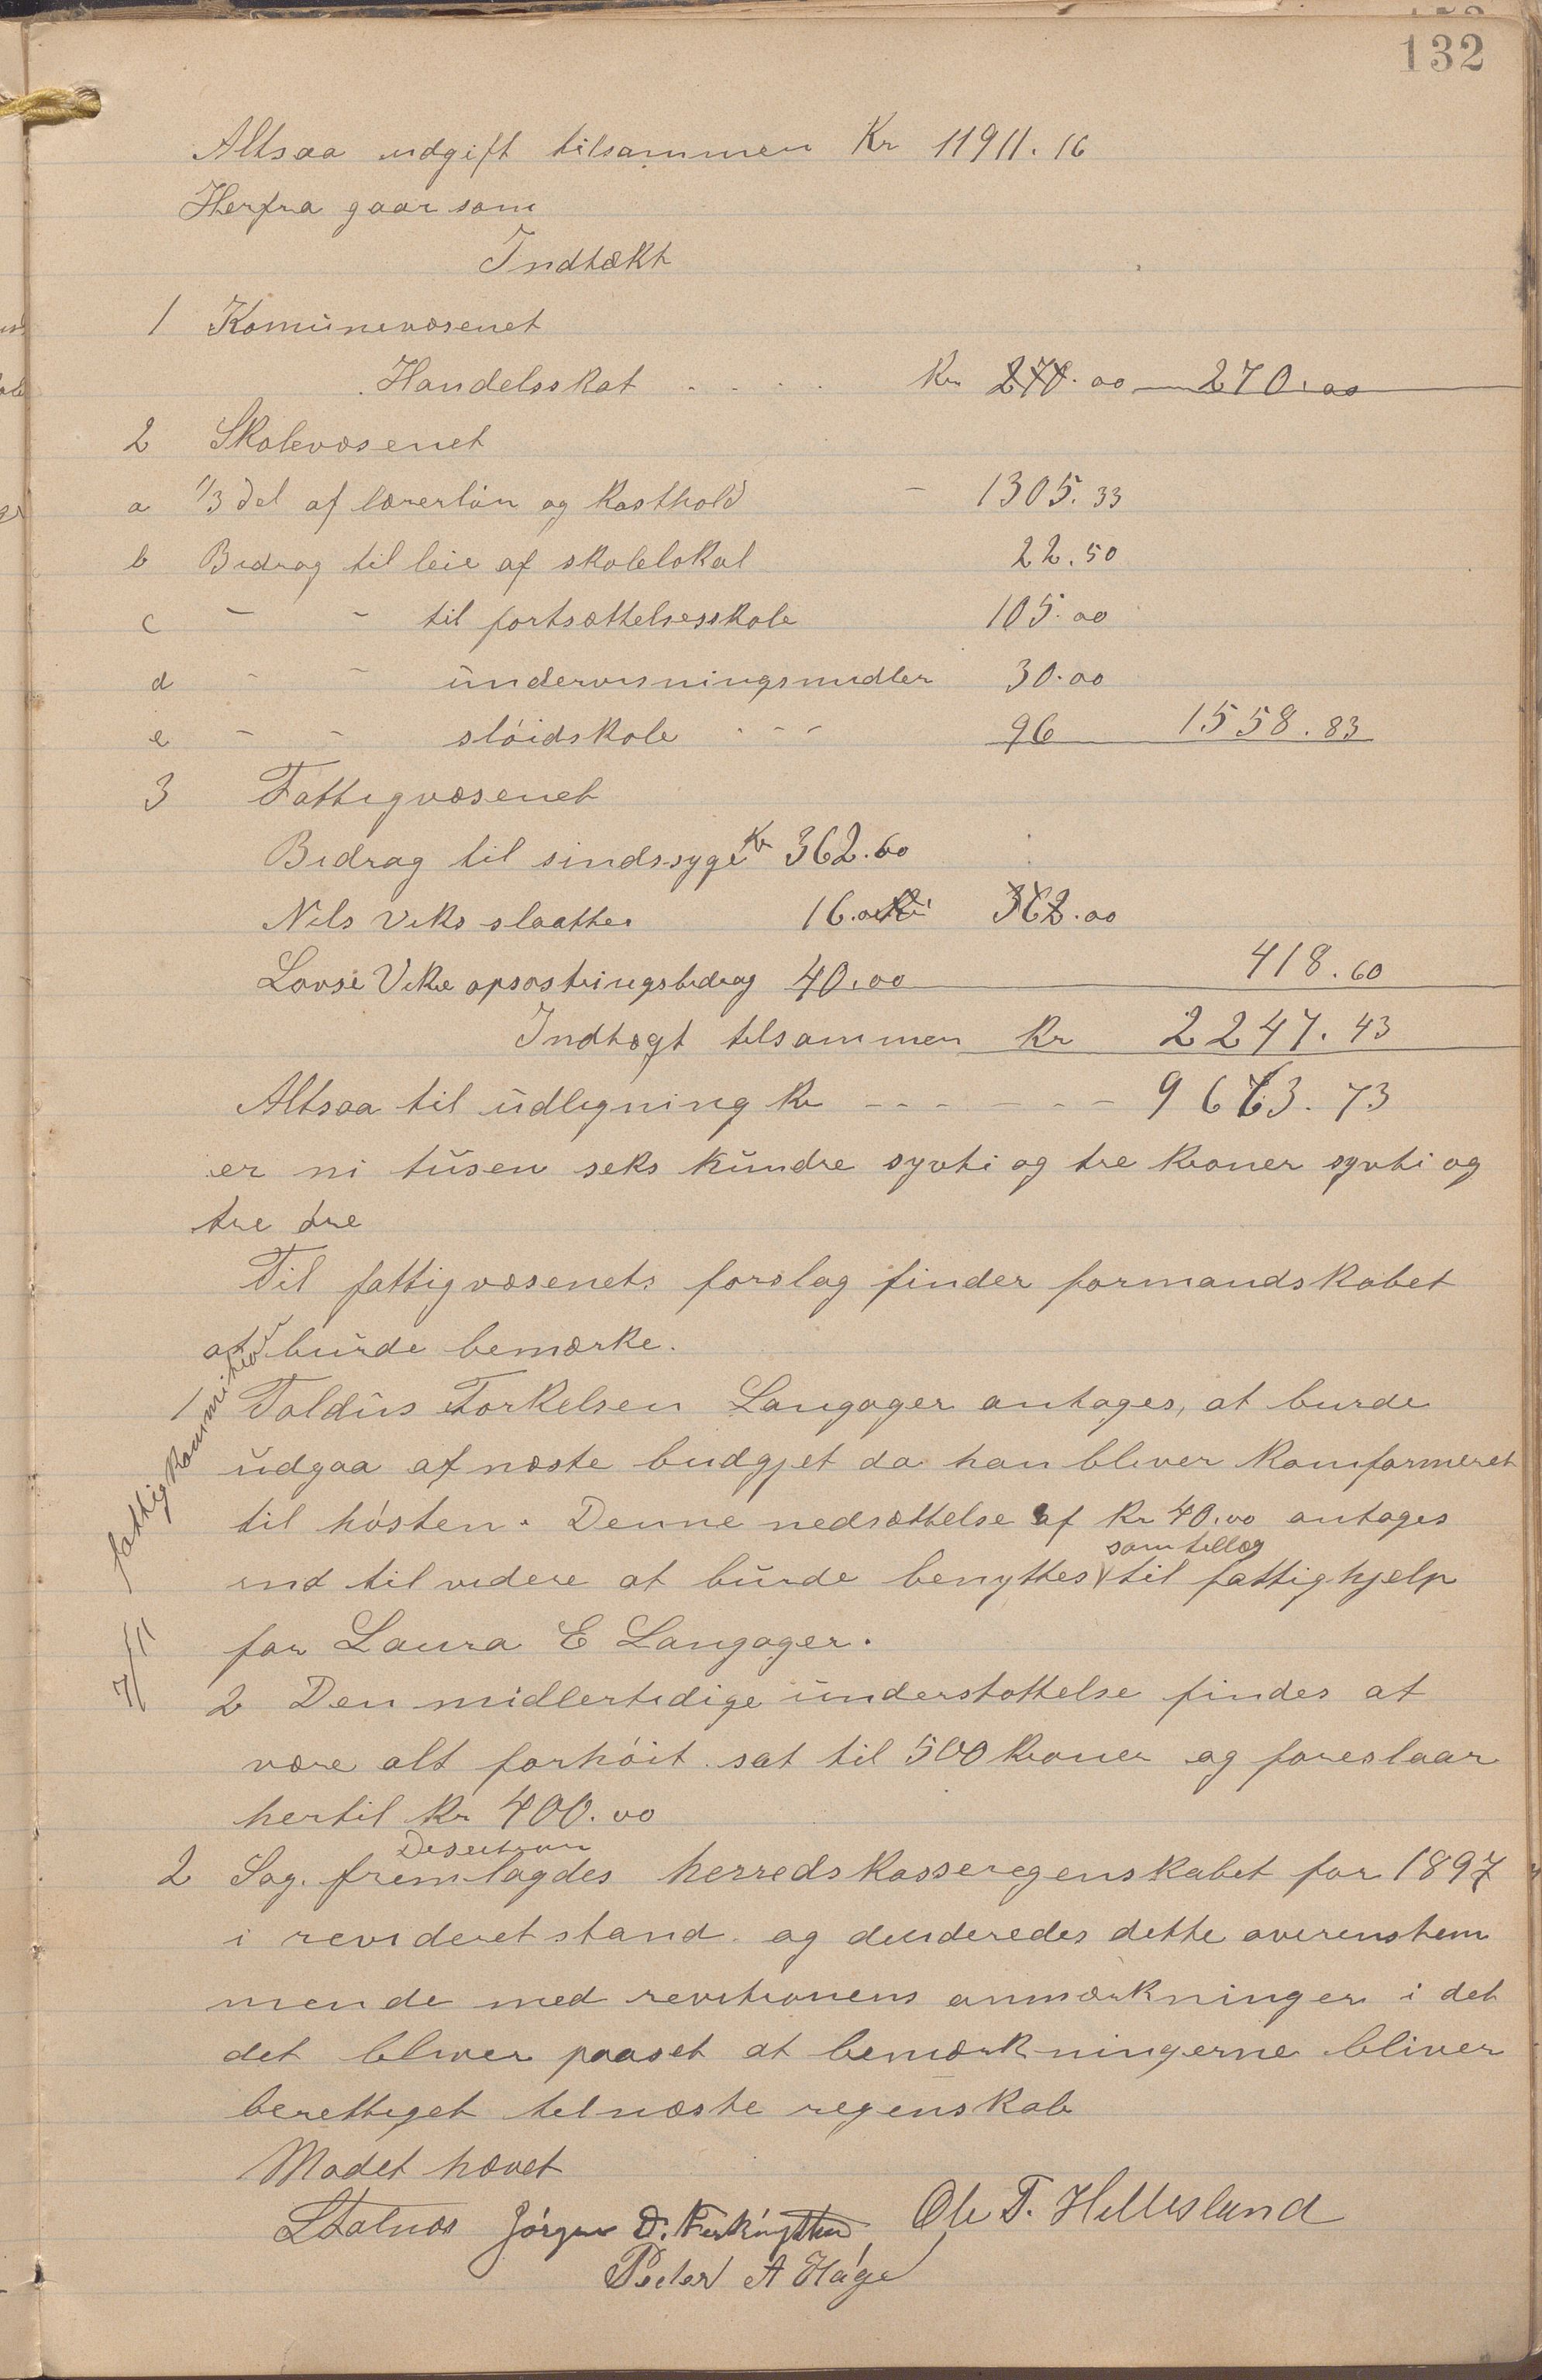 132
Altsaa udgift tilsammen Kr 11911.16
Herfra gaar som
Indtækt
1 Komunevæsenet
Handelsskat . . . . Kr 270.00 270.00
2 Skolevæsenet
a 1/3 del af lærerløn og Kosthold - 1305.33
b Bidrag til leie af skolelokal 22.50
c - - til fortsættelsesskole 105.00
d - - undervisningsmidler 30.00
e - - sløidskole - - - 96 1558.83
3 Fattigvæsenet
Bidrag til sindssyge Kr 362.60
Nils Viks slaatter 16.00 362.00
Lovse Vike opfostringsbidrag 40.00 418.60
Indtægt tilsammen Kr 2247.43
Altsaa til udligning Kr - - - - - - 9663.73
er ni tusen seks hundre sytti og tre Kroner sytti og
tre øre
Til fattigvæsenets forslag finder formandskabet
at burde bemærke.
1 Toldus Torkelsen Langager antages, at burde
udgaa af næste budgjet da han bliver Komformeret
til høsten. Denne nedsættelse af Kr 40.00 antages
som tillæg
ind til videre at burde benyttes til fattighjelp
for Laura E Langager.
2 Den midlertidige understøttelse findes at
være alt forhøit sat til 500 Kroner og foreslaar
hertil Kr 400.00
2 Sag. fremlagdes herredskasseregenskabet for 1897
i revideret stand og desideredes dette overenstem
mende med revitionens anmærkninger i det
det bliver paaset at bemærkningerne bliver
berettiget til næste regenskab
Mødet hævet
Jørgen D. Ferkingstad Ole T. Hillesland
Peder A Håge
fattigkommisio
7/11